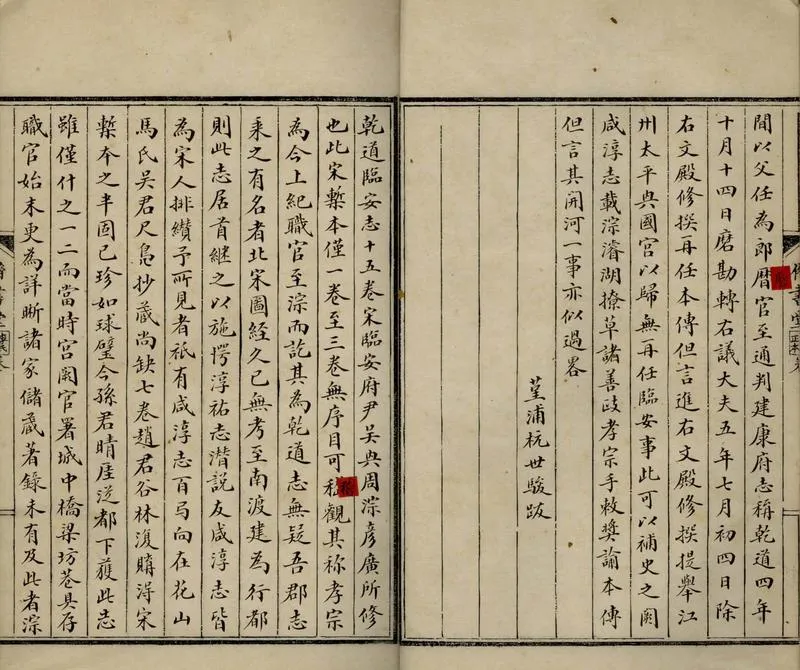 間以父任為郎曆官至通判建康府志稱乾道四年
十月十四日磨勘轉右議大夫五年七月初四日除
右文殿修撰再任本傳但言進右文殿修撰提舉江
州太平興國宮以歸無再任臨安事此可以補史之闕
咸淳志載淙濬湖撩草諸善政孝宗手敕奬諭本傳
但言其開河一事亦似過畧
堇浦杭世駿跋
乾道臨安志十五卷宋臨安府尹吳興周淙彥廣所修
也此宋槧本僅一卷至三卷無序目可稽觀其称孝宗
為今上紀職官至淙而訖其為乾道志無疑吾郡志
乘之有名者北宋圖經久已無考至南渡建為行都
則此志居首繼之以施愕淳祐志潛說友咸淳志皆
為宋人排纘予所見者祇有咸淳志百弓向在花山
馬氏吳君尺鳧抄藏尚缺七卷趙君谷林復購淂宋
槧本之半固已珍如球璧今孫君晴厓從都下獲此志
雖僅什之一二而當時宮闕官署城中橋梁坊巷具存
職官始末更為詳晰諸家儲藏著錄未有及此者淙